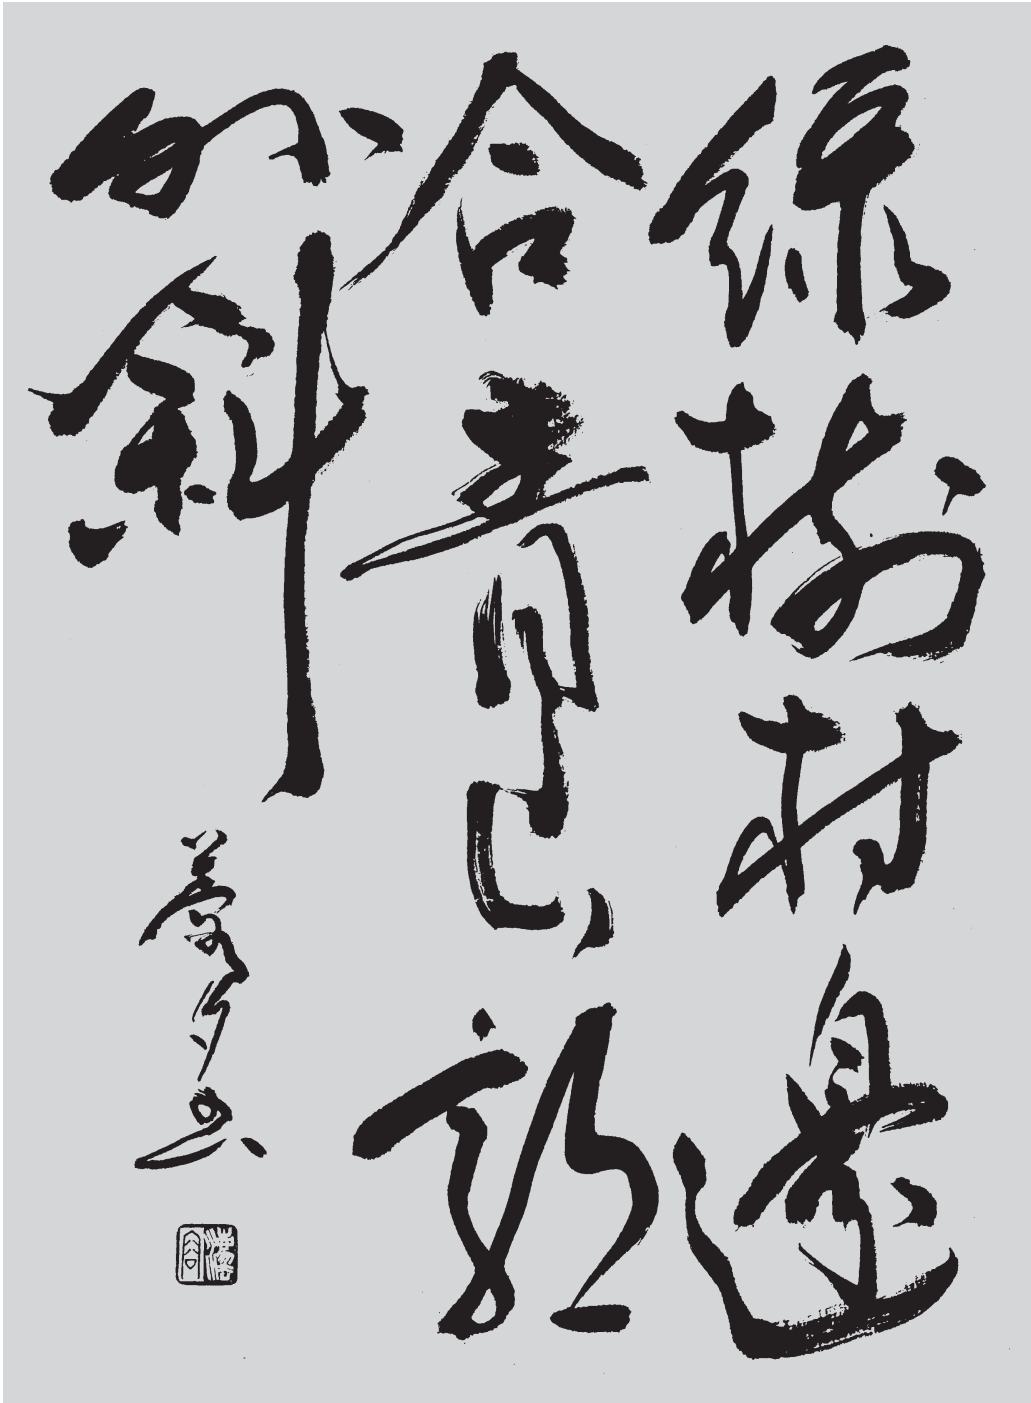 綠樹村邊
合青山郭
外斜